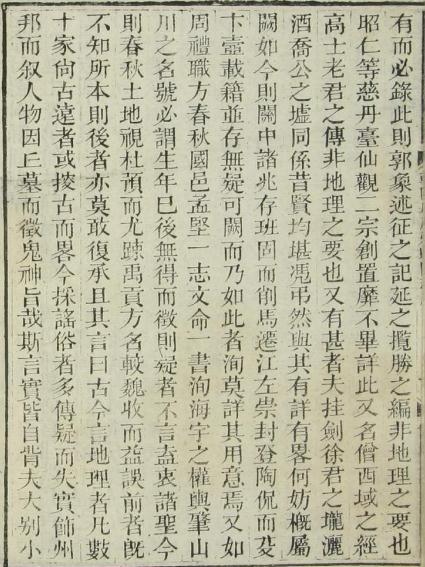 有而必錄此則郭象述征之記延之攬勝之編非地理之要也
昭仁等慈丹臺仙觀二宗創置靡不畢詳此又名僧西域之經
高士老君之傳非地理之要也又有甚者夫挂劍徐君之壠灑
酒喬公之墟同係昔賢均堪馮弔然與其有詳有畧何妨概屬
闕如今則關中諸兆存班固而削馬遷江左崇封登陶侃而芟
卞壼載籍並存無疑可闕而乃如此者洵莫詳其用意焉又如
周禮職方春秋國邑孟堅一志文命一書洵海宇之權輿肇山
川之名號必謂生年巳後無得而徵則疑者不言盍衷諸聖今
則春秋土地視杜預而尤踈禹貢方名較魏收而益誤前者旣
不知所本則後者亦莫敢復承且其言曰古今言地理者凡數
十家尙古遠者或搜古而畧今採謠俗者多傳疑而失實飾州
邦而叙人物因丘墓而徵鬼神旨哉斯言實皆自背夫大别小